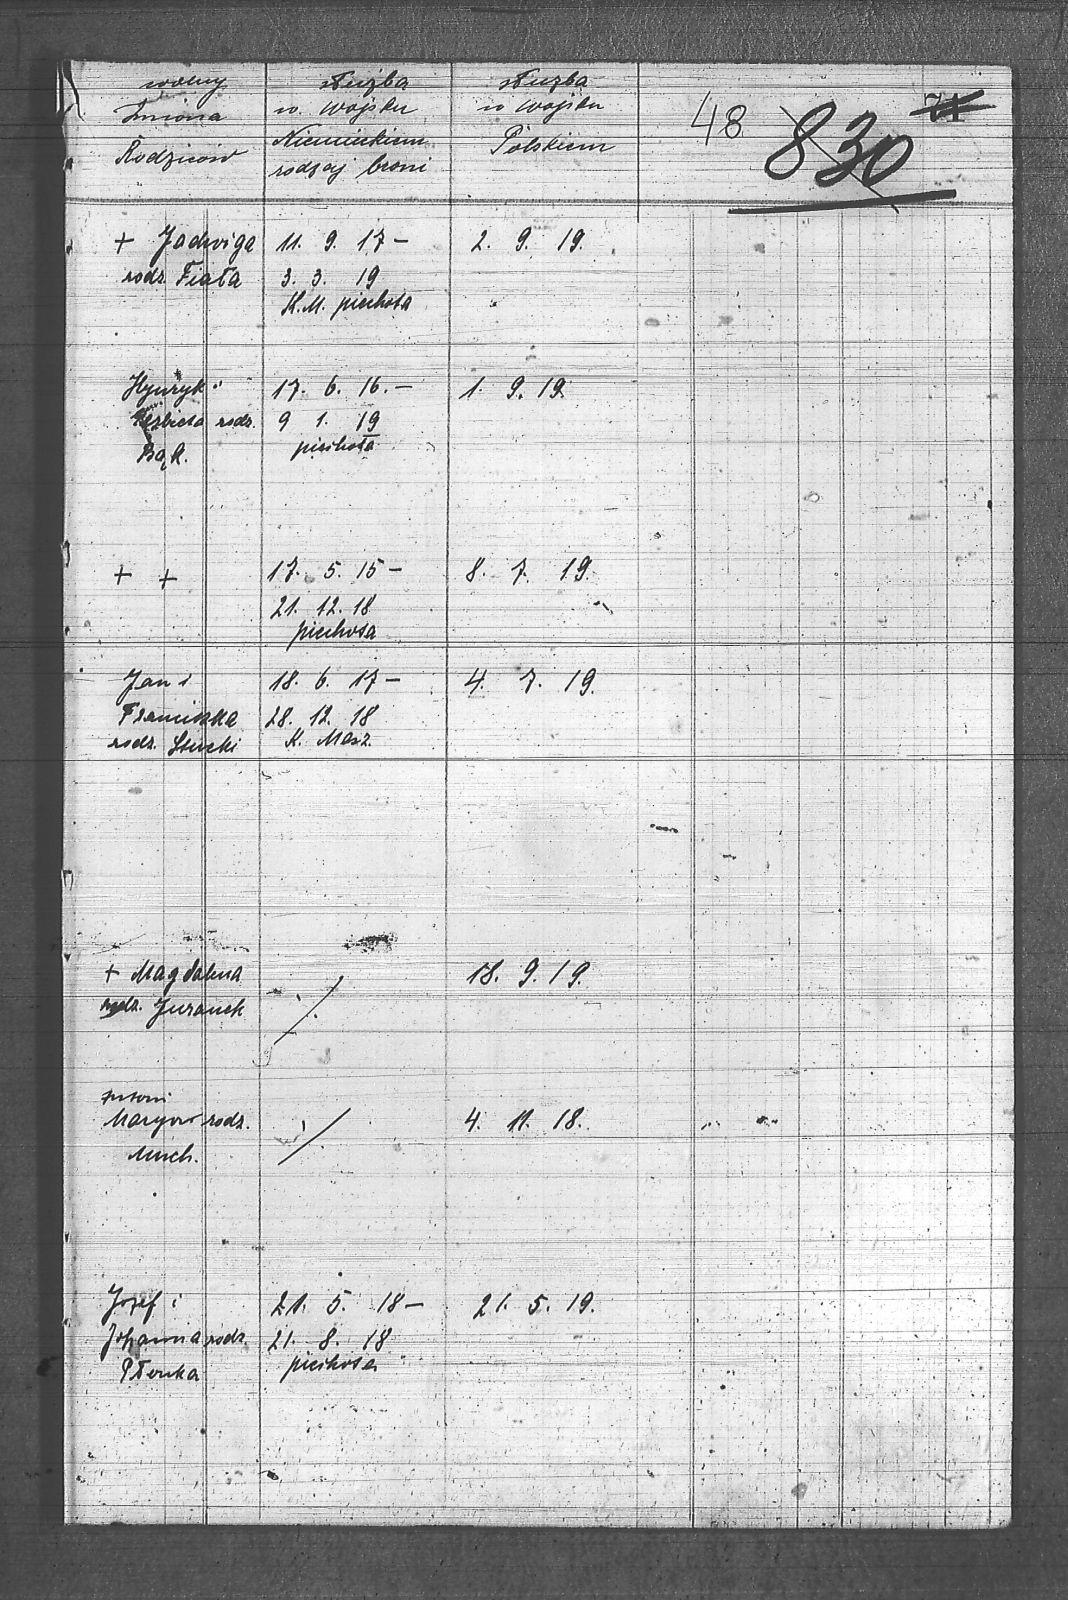 wolny służba służba
Imiona w. wojsku w wojsku 48 830 71
Rodziców Niemieckiem Polskiem
rodzaj broni
+ Jadwiga 11. 9. 17 – 2. 9. 19.
rodz. Fiała 3. 3. 19
K.M. piechota
Hynryk i 17. 6. 16. – 1. 9. 19.
Elżbieta rodz. 9 1. 19
Bąk. piechota
+ + 17. 5. 15 – 8. 7. 19.
21. 12. 18
piechota
Jan i 18. 6. 17 – 4. 7. 19.
Franciszka 28. 12. 18
rodz. K. Masz.
+ Magdalena 18. 9. 19.
rodz. Juranek
Antoni
rodz. 4. 11. 18.
Much.
Jozef i 21. 5. 18 – 21. 5. 19.
Johanna rodz. 21. 8. 18
Płonka piechota